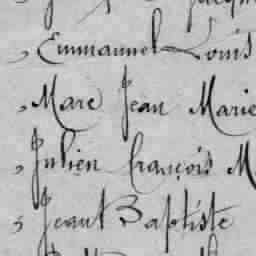 , Emmanuel Louis
, Marc Jean Marie
, Julien françois M
, Jean Baptiste